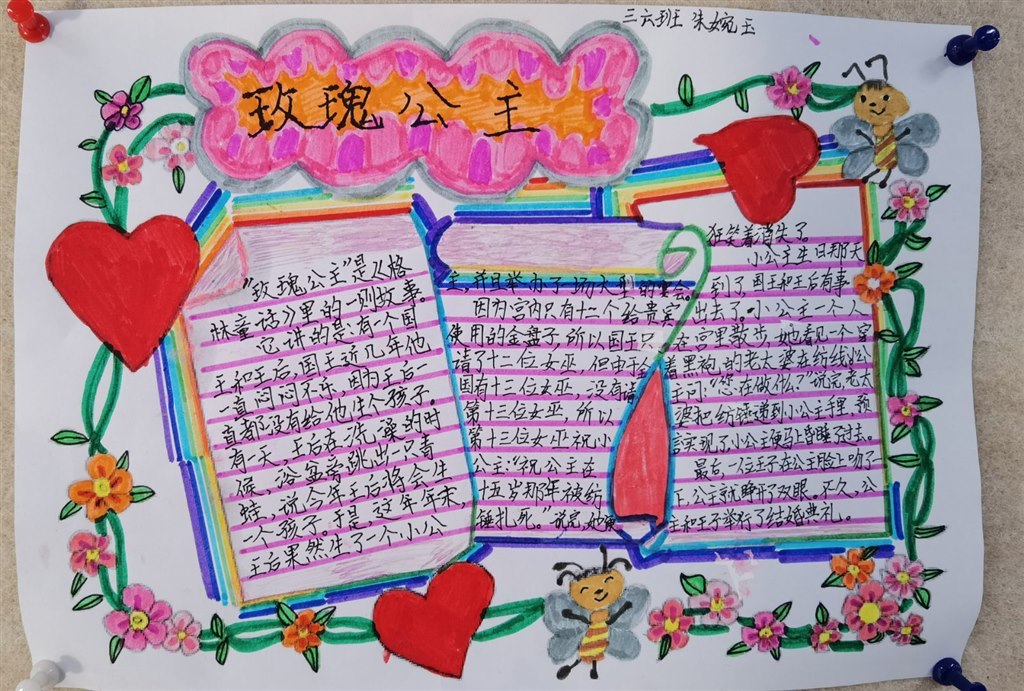 三六班 朱婉玉
玫瑰公主
“玫瑰公主”是《格
林童话》里的一则故事。
它讲的是:有一个国
王和王后,国王近几年他
一直闷闷不乐,因为王后一
直都没有给他生个孩子。
有一天,王后在洗澡的时
候,浴盆旁跳出一只青
蛙,说今年王后将会生
一个孩子。于是,这年年末,
王后果然生了一个小公
主,并且举办了一场大型的宴会。
因为宫内只有十二个给贵宾
使用的金盘子,所以国王只
请了十二位女巫,但由于
国有十三位女巫,没有请
第十三位女巫,所以
第十三位女巫祝小
公主:“祝公主在
十五岁那年被纺
锤扎死。”说完,她便
狂笑着消失了。
小公主生日那天
到了,国王和王后有事
出去了。小公主一个人
在宫里散步,她看见一个穿
着黑袍的老太婆在纺线,小公
主问:“您在做什么?”说完,老太
婆把纺锤递到小公主手里,预
言实现了,小公主便马上昏睡了过去。
最后,一位王子在公主脸上吻了
下,公主就睁开了双眼。不久,公
主和王子举行了结婚典礼。